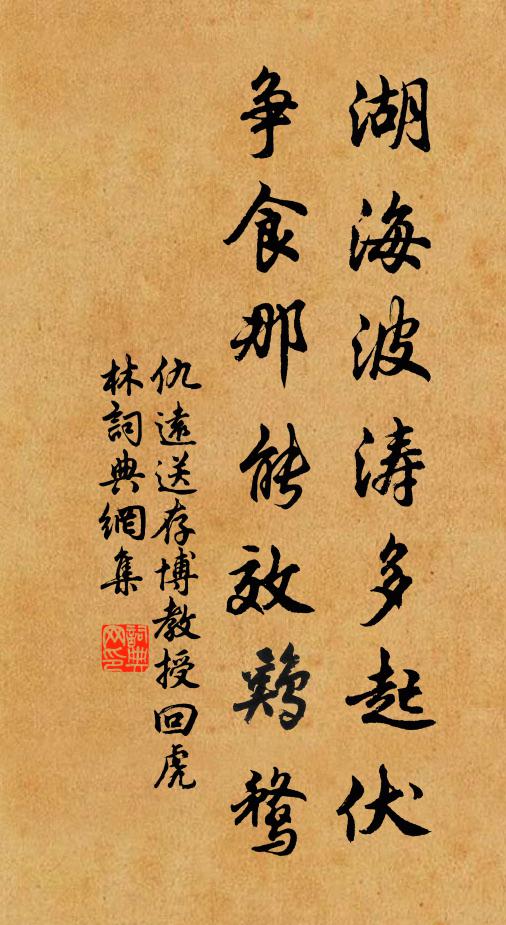 湖海波涛多起伏
争食那能效鷄鶩
仇遠送存博教授回虎
林詞典網集
詞典网印